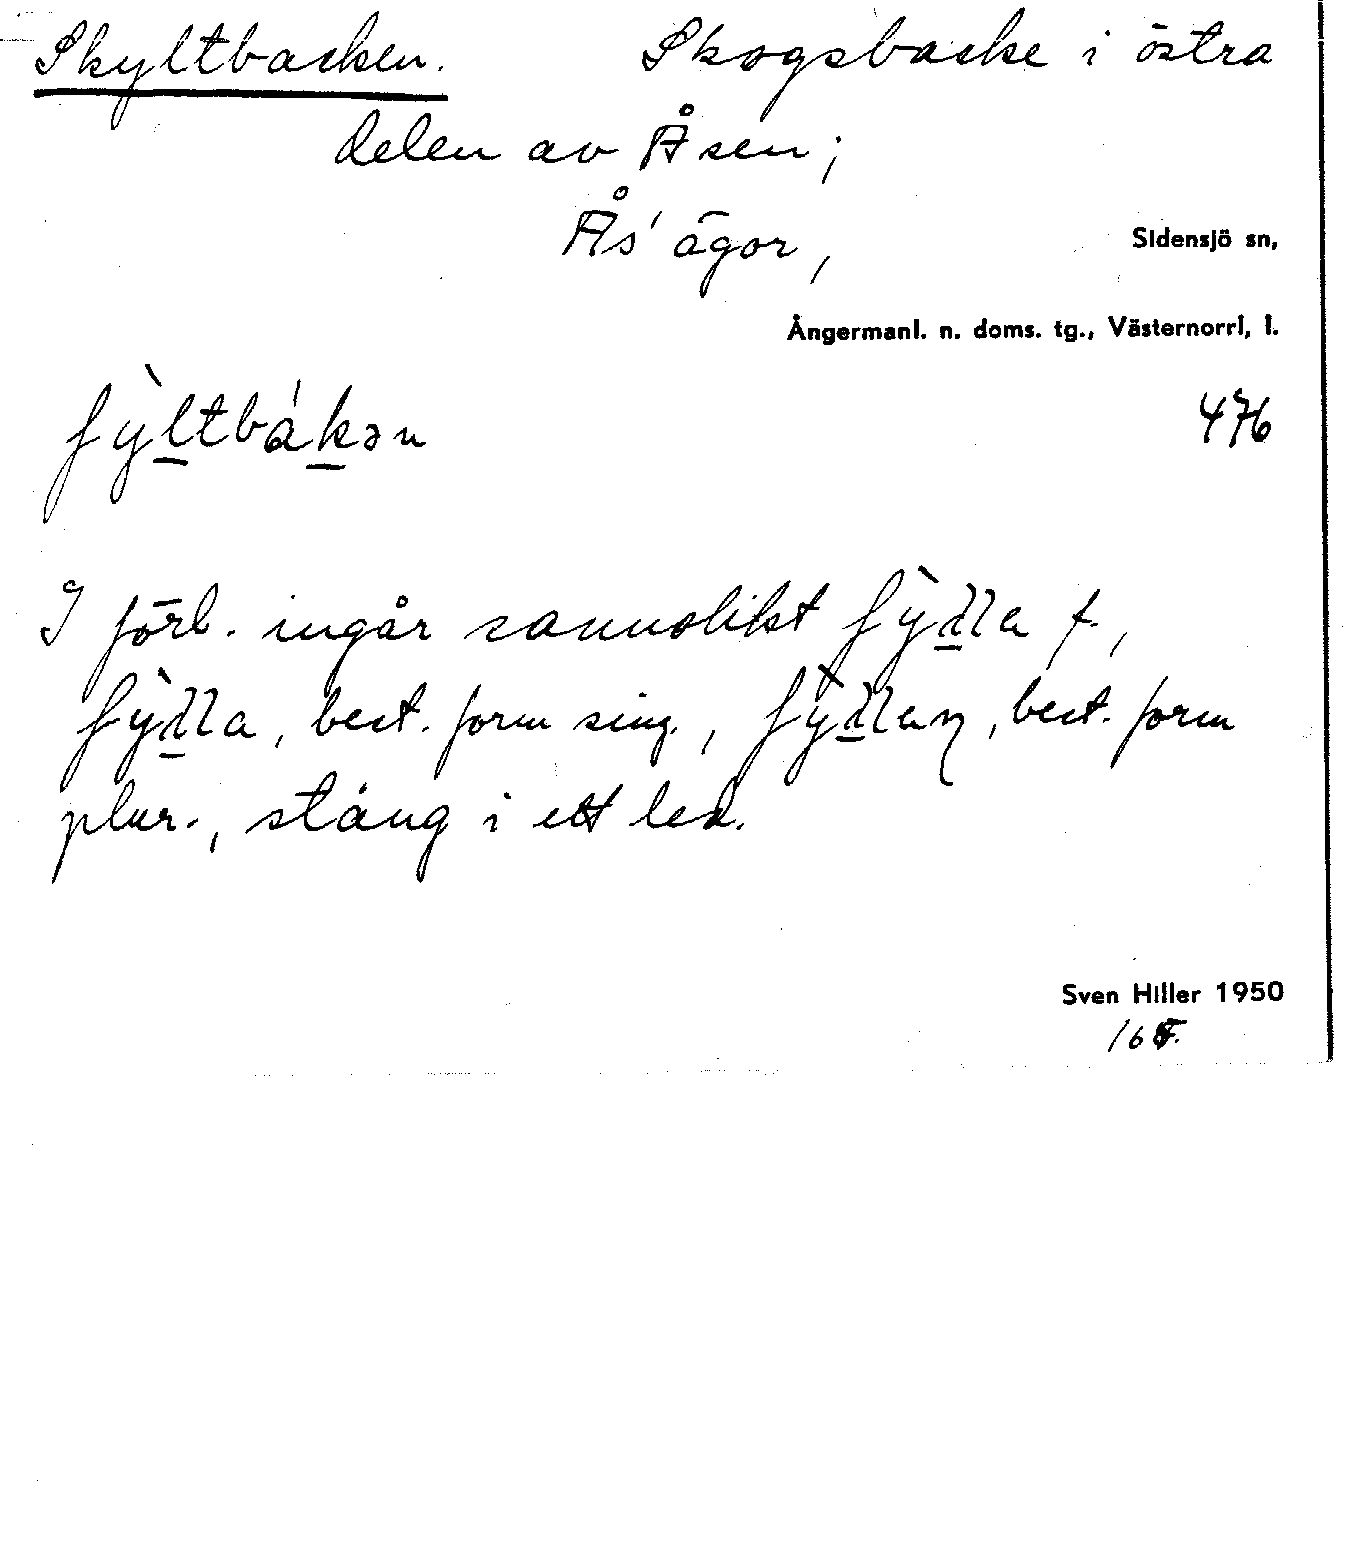 Skyltbacken. Skogsbacke i östra
delen av Åsen;
Ås' ägor,
Sidensjö sn,
Ångermanl. n. doms. tg., Västernorrl. l.
ʃỳltbákən
476
I förb. ingår sannolikt ʃỳdla f.,
ʃỳdla, best. form sing., ʃỳdlaɳ, best. form
plur., stång i ett led.
Sven Hiller 1950